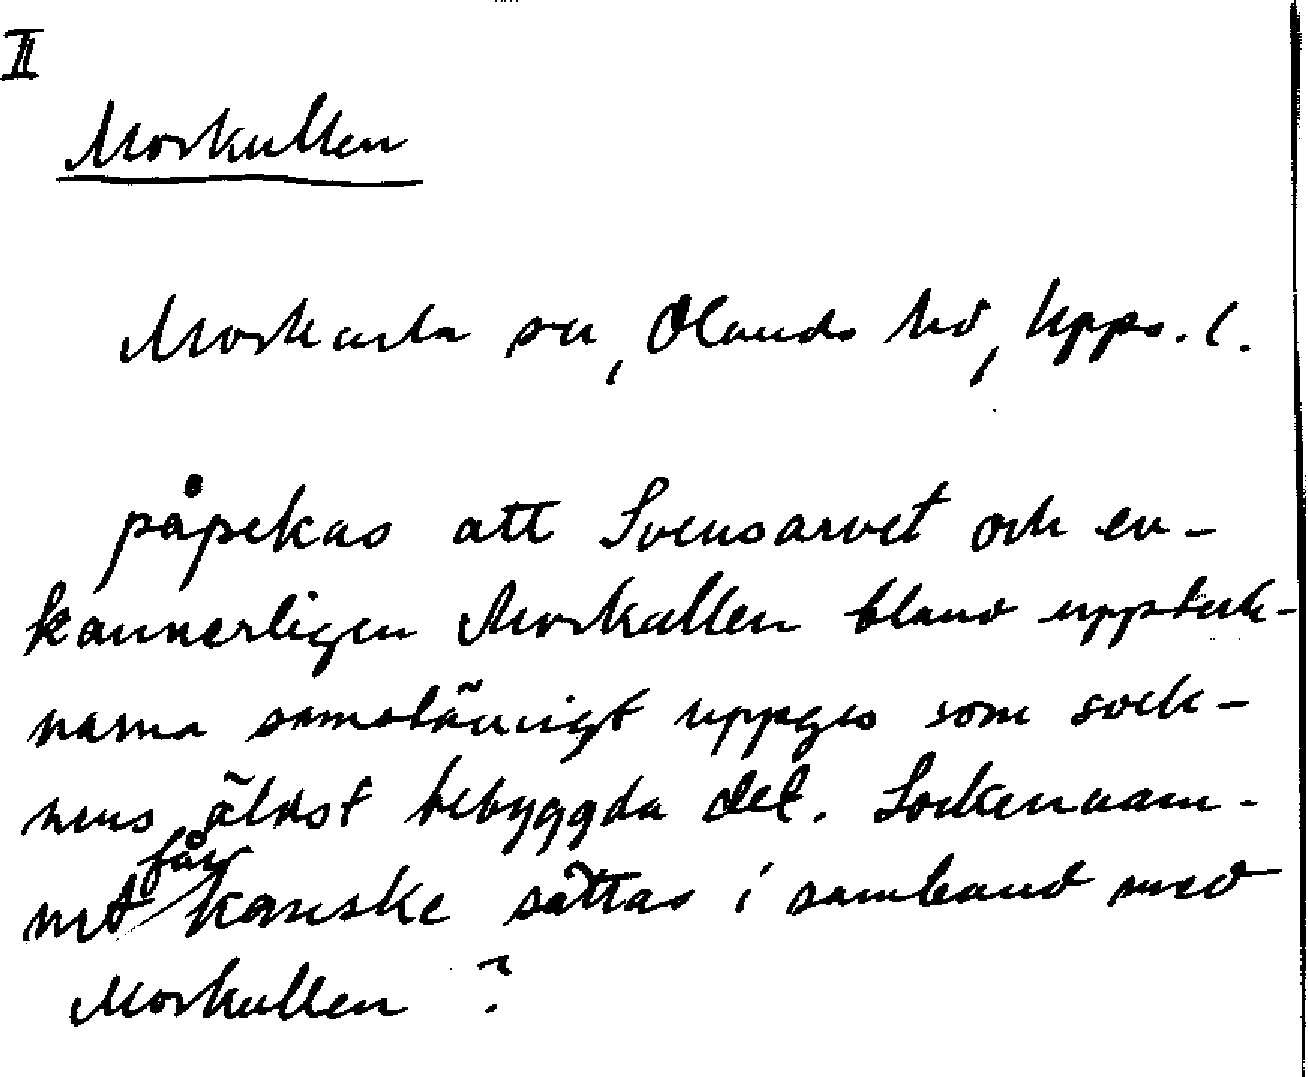 II
Morkullen
Morkarla sn, Olands hd, Upps. l.
påpekas att Svensarvet och en-
kannerligen Morkullen bland uppteck-
narna samstämmigt uppges som sock-
nens äldst bebyggda del. Sockennam-
net får kanske sättas i samband med
Morkullen ?